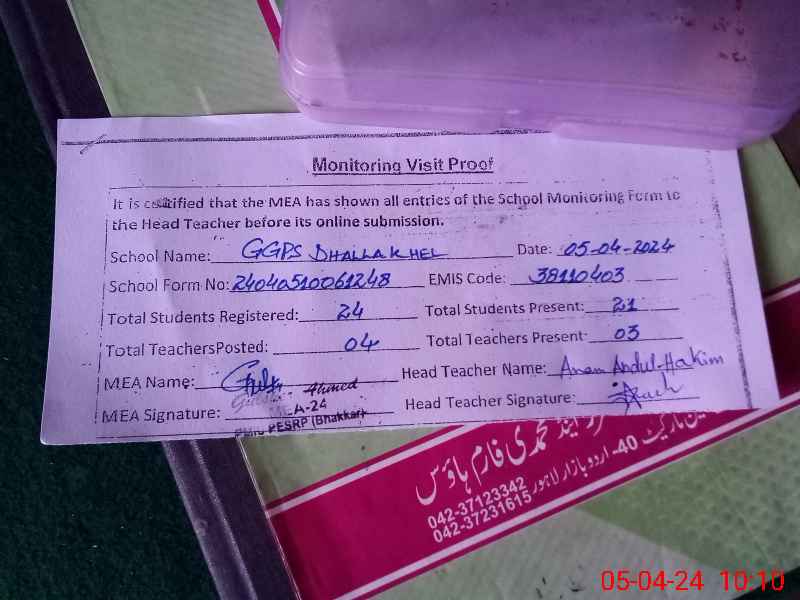 Monitoring Visit Proof
It is certified that the MEA has shown all entries of the School Monitoring Form to
the Head Teacher before its online submission.
School Name: GGPS DHALLAKHEL Date: 05-04-2024
School Form No: 2404a510061248 EMIS Code: 38110403
Total Students Registered: 24 Total Students Present: 21
Total TeachersPosted: 04 Total Teachers Present: 03
MEA Name: Head Teacher Name: Anam Andul-Hakim
Ahmed
MEA Signature: MEA-24 Head Teacher Signature:
PESRP (Bhakkar)
محمدی فارم ہاؤس
40- اردو بازار لاہور
042-37123342
042-37231615
05-04-24 10:10